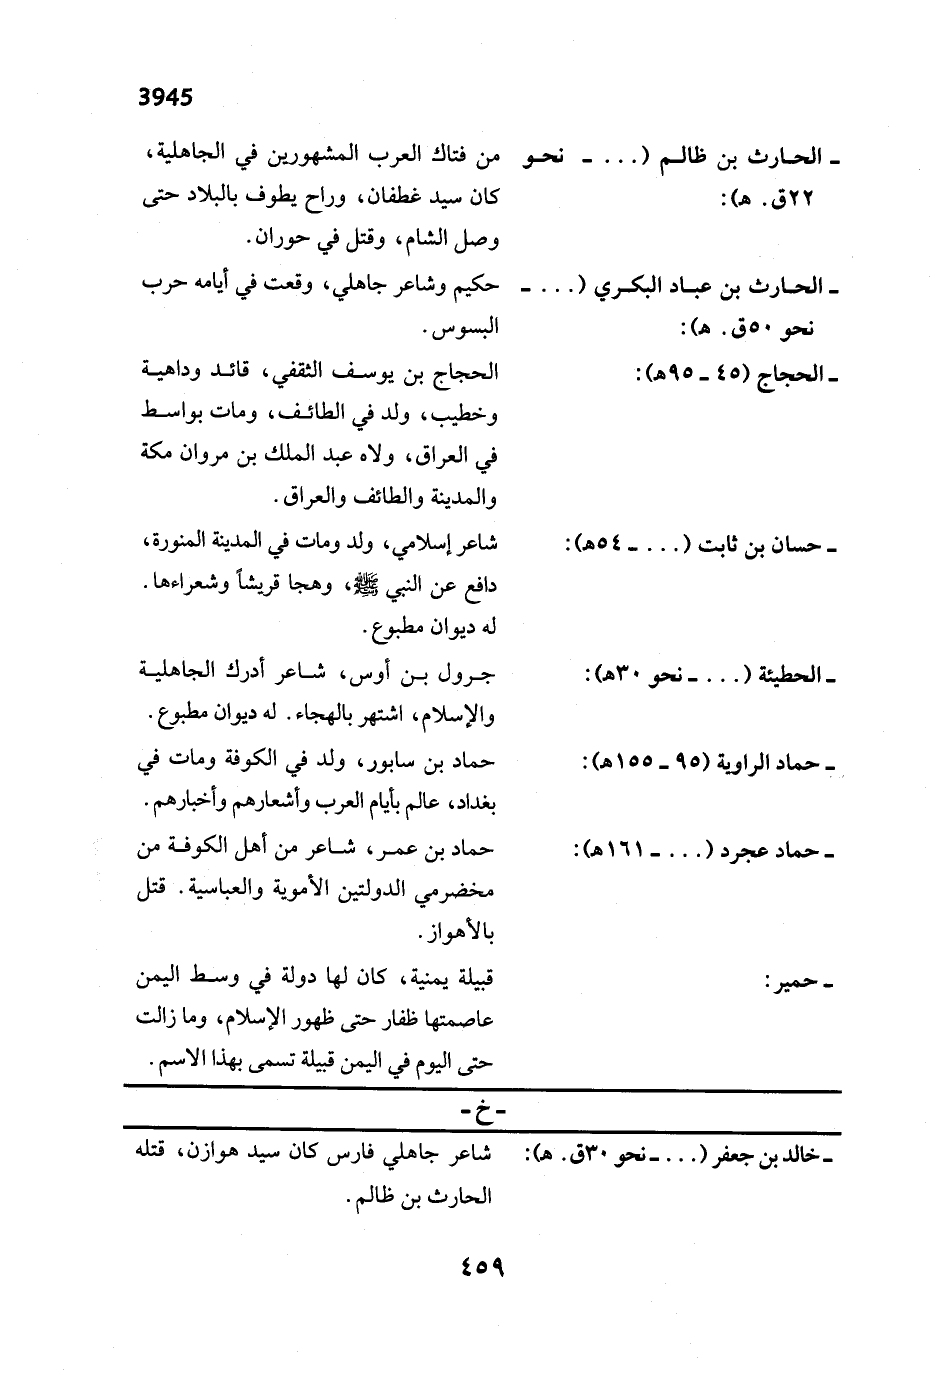 3945
ـ الحارث بن ظالم (... ـ نحو من فتاك العرب المشهورين في الجاهلية،
٢٢ق. هـ): كان سيد غطفان، وراح يطوف بالبلاد حتى
وصل الشام، وقتل في حوران.
ـ الحارث بن عباد البكري (... ـ حكيم وشاعر جاهلي، وقعت في أيامه حرب
نحو ٥٠ق. هـ): البسوس.
ـ الحجاج (٤٥ ـ ٩٥هـ): الحجاج بن يوسف الثقفي، قائد وداهية
وخطيب، ولد في الطائف، ومات بواسط
في العراق، ولاه عبد الملك بن مروان مكة
والمدينة والطائف والعراق.
ـ حسان بن ثابت (... ـ ٥٤هـ): شاعر إسلامي، ولد ومات في المدينة المنورة،
دافع عن النبي ﷺ، وهجا قريشاً وشعراءها.
له ديوان مطبوع.
ـ الحطيئة (... ـ نحو ٣٠هـ): جرول بن أوس، شاعر أدرك الجاهلية
والإسلام، اشتهر بالهجاء. له ديوان مطبوع.
ـ حماد الراوية (٩٥ ـ ١٥٥هـ): حماد بن سابور، ولد في الكوفة ومات في
بغداد، عالم بأيام العرب وأشعارهم وأخبارهم.
ـ حماد عجرد (... ـ ١٦١هـ): حماد بن عمر، شاعر من أهل الكوفة من
مخضرمي الدولتين الأموية والعباسية. قتل
بالأهواز.
ـ حمير: قبيلة يمنية، كان لها دولة في وسط اليمن
عاصمتها ظفار حتى ظهور الإسلام، وما زالت
حتى اليوم في اليمن قبيلة تسمى بهذا الاسم.
- خ -
ـ خالد بن جعفر (... ـ نحو ٣٠ق. هـ): شاعر جاهلي فارس كان سيد هوازن، قتله
الحارث بن ظالم.
٤٥٩